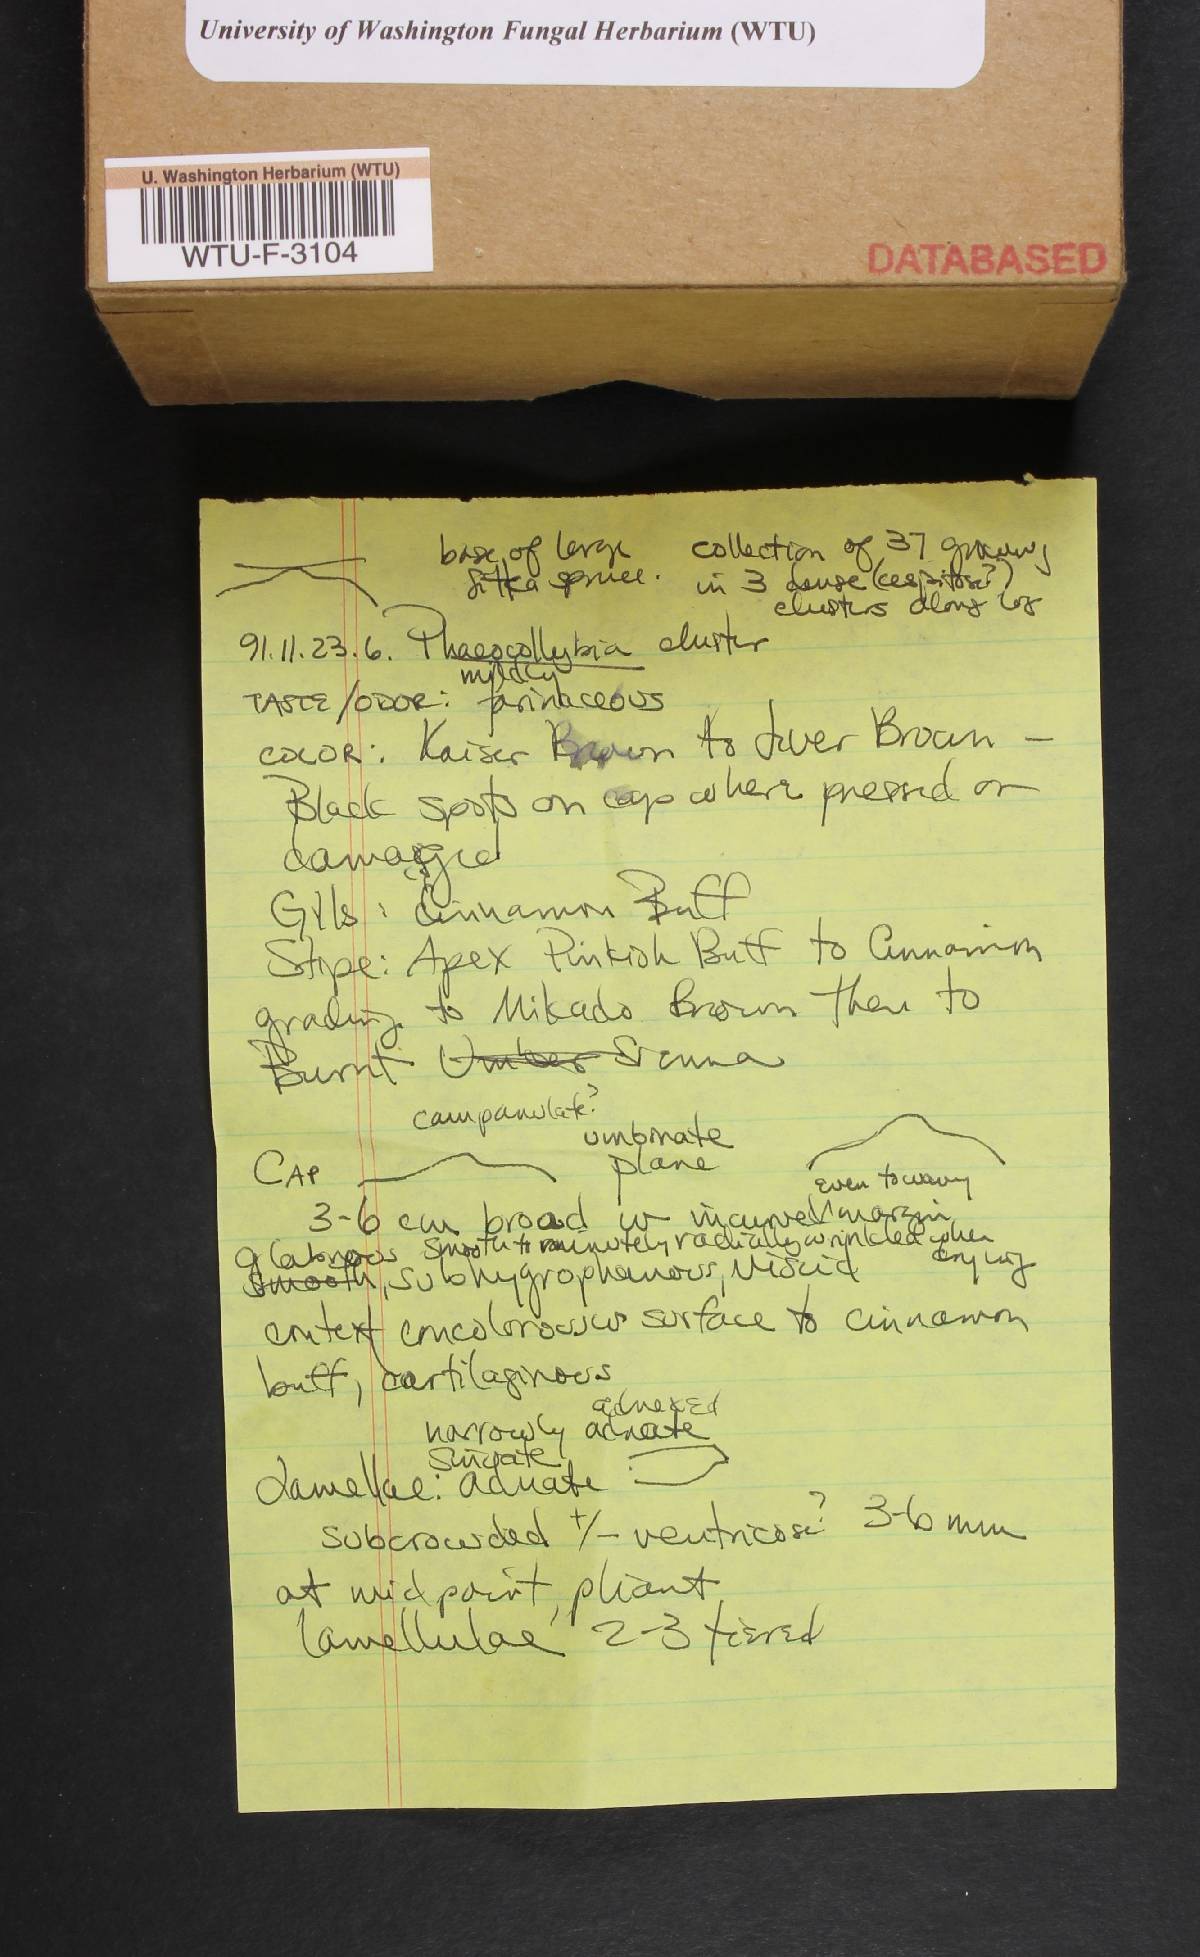 University of Washington Fungal Herbarium (WTU)
U. Washington Herbarium (WTU)
WTU-F-3104
DATABASED
base of large
Sitka spruce.
collection of 37 growing
in 3 dense (cespitose?)
clusters along log
91.11.23.6. Phaeocollybia cluster
mildly
TASTE/ODOR: farinaceous
COLOR: Kaiser Brown to Liver Brown –
Black spots on cap where pressed or
damaged
Gills: Cinnamon Buff
Stipe: Apex Pinkish Buff to Cinnamon
grading to Mikado Brown then to
Burnt Umber Sienna
campanulate?
umbonate
CAP plane
even to wavy
3-6 cm broad w incurved margin
glabrous smooth to minutely radially wrinkled when
drying
smooth, subhygrophanous, viscid
context concolorous w surface to cinnamon
buff, cartilaginous
adnexed
narrowly adnate
sinuate
Lamellae: adnate
subcrowded +/- ventricose? 3-6 mm
at midpoint, pliant
lamellulae 2-3 tiered